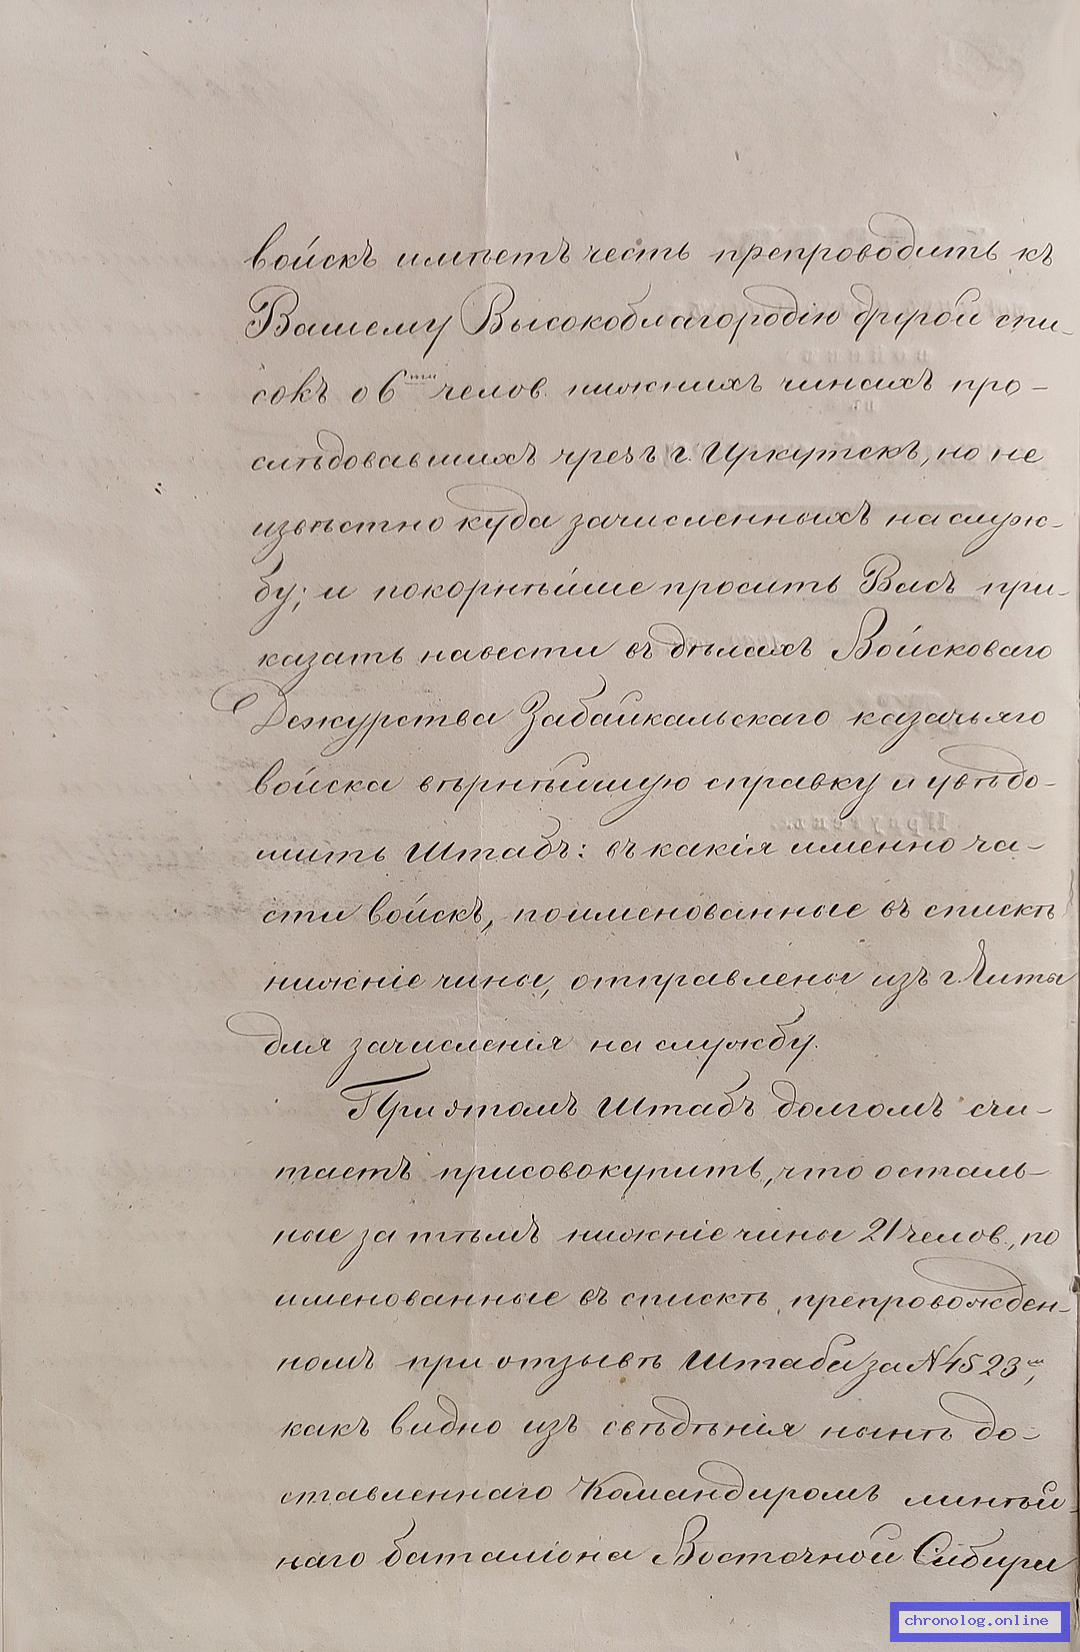 войскъ имѣетъ честь препроводить къ
Вашему Высокоблагородію другой спи-
сокъ о 6ти челов. нижнихъ чинахъ про-
слѣдовавшихъ чрезъ г. Иркутскъ, но не
извѣстно куда зачисленныхъ на служ-
бу; и покорнѣйше просить Васъ при-
казать навести въ дѣлахъ Войсковаго
Дежурства Забайкальскаго казачьяго
войска вѣрнѣйшую справку и увѣдо-
мить Штабъ: въ какія именно ча-
сти войскъ, поименованные въ спискѣ
нижніе чины, отправлены изъ г. Читы
для зачисленія на службу.
При этомъ Штабъ долгомъ счи-
таетъ присовокупить, что осталь-
ные за тѣмъ нижніе чины 21 челов., по
именованные въ спискѣ, препровожден-
номъ при отзывѣ Штаба за № 4523,
какъ видно изъ свѣдѣнія нынѣ до-
ставленнаго Командиромъ линѣй-
наго баталіона Восточной Сибири
chronolog.online